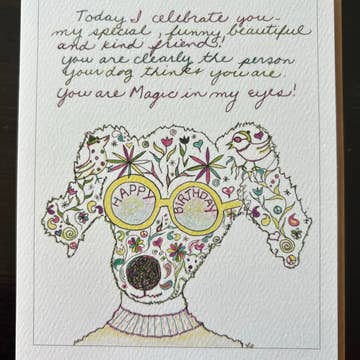 Today I celebrate you -
my special, funny, beautiful
and kind friend!
You are clearly the person
your dog thinks you are.
You are Magic in my eyes!
HAPPY BIRTHDAY